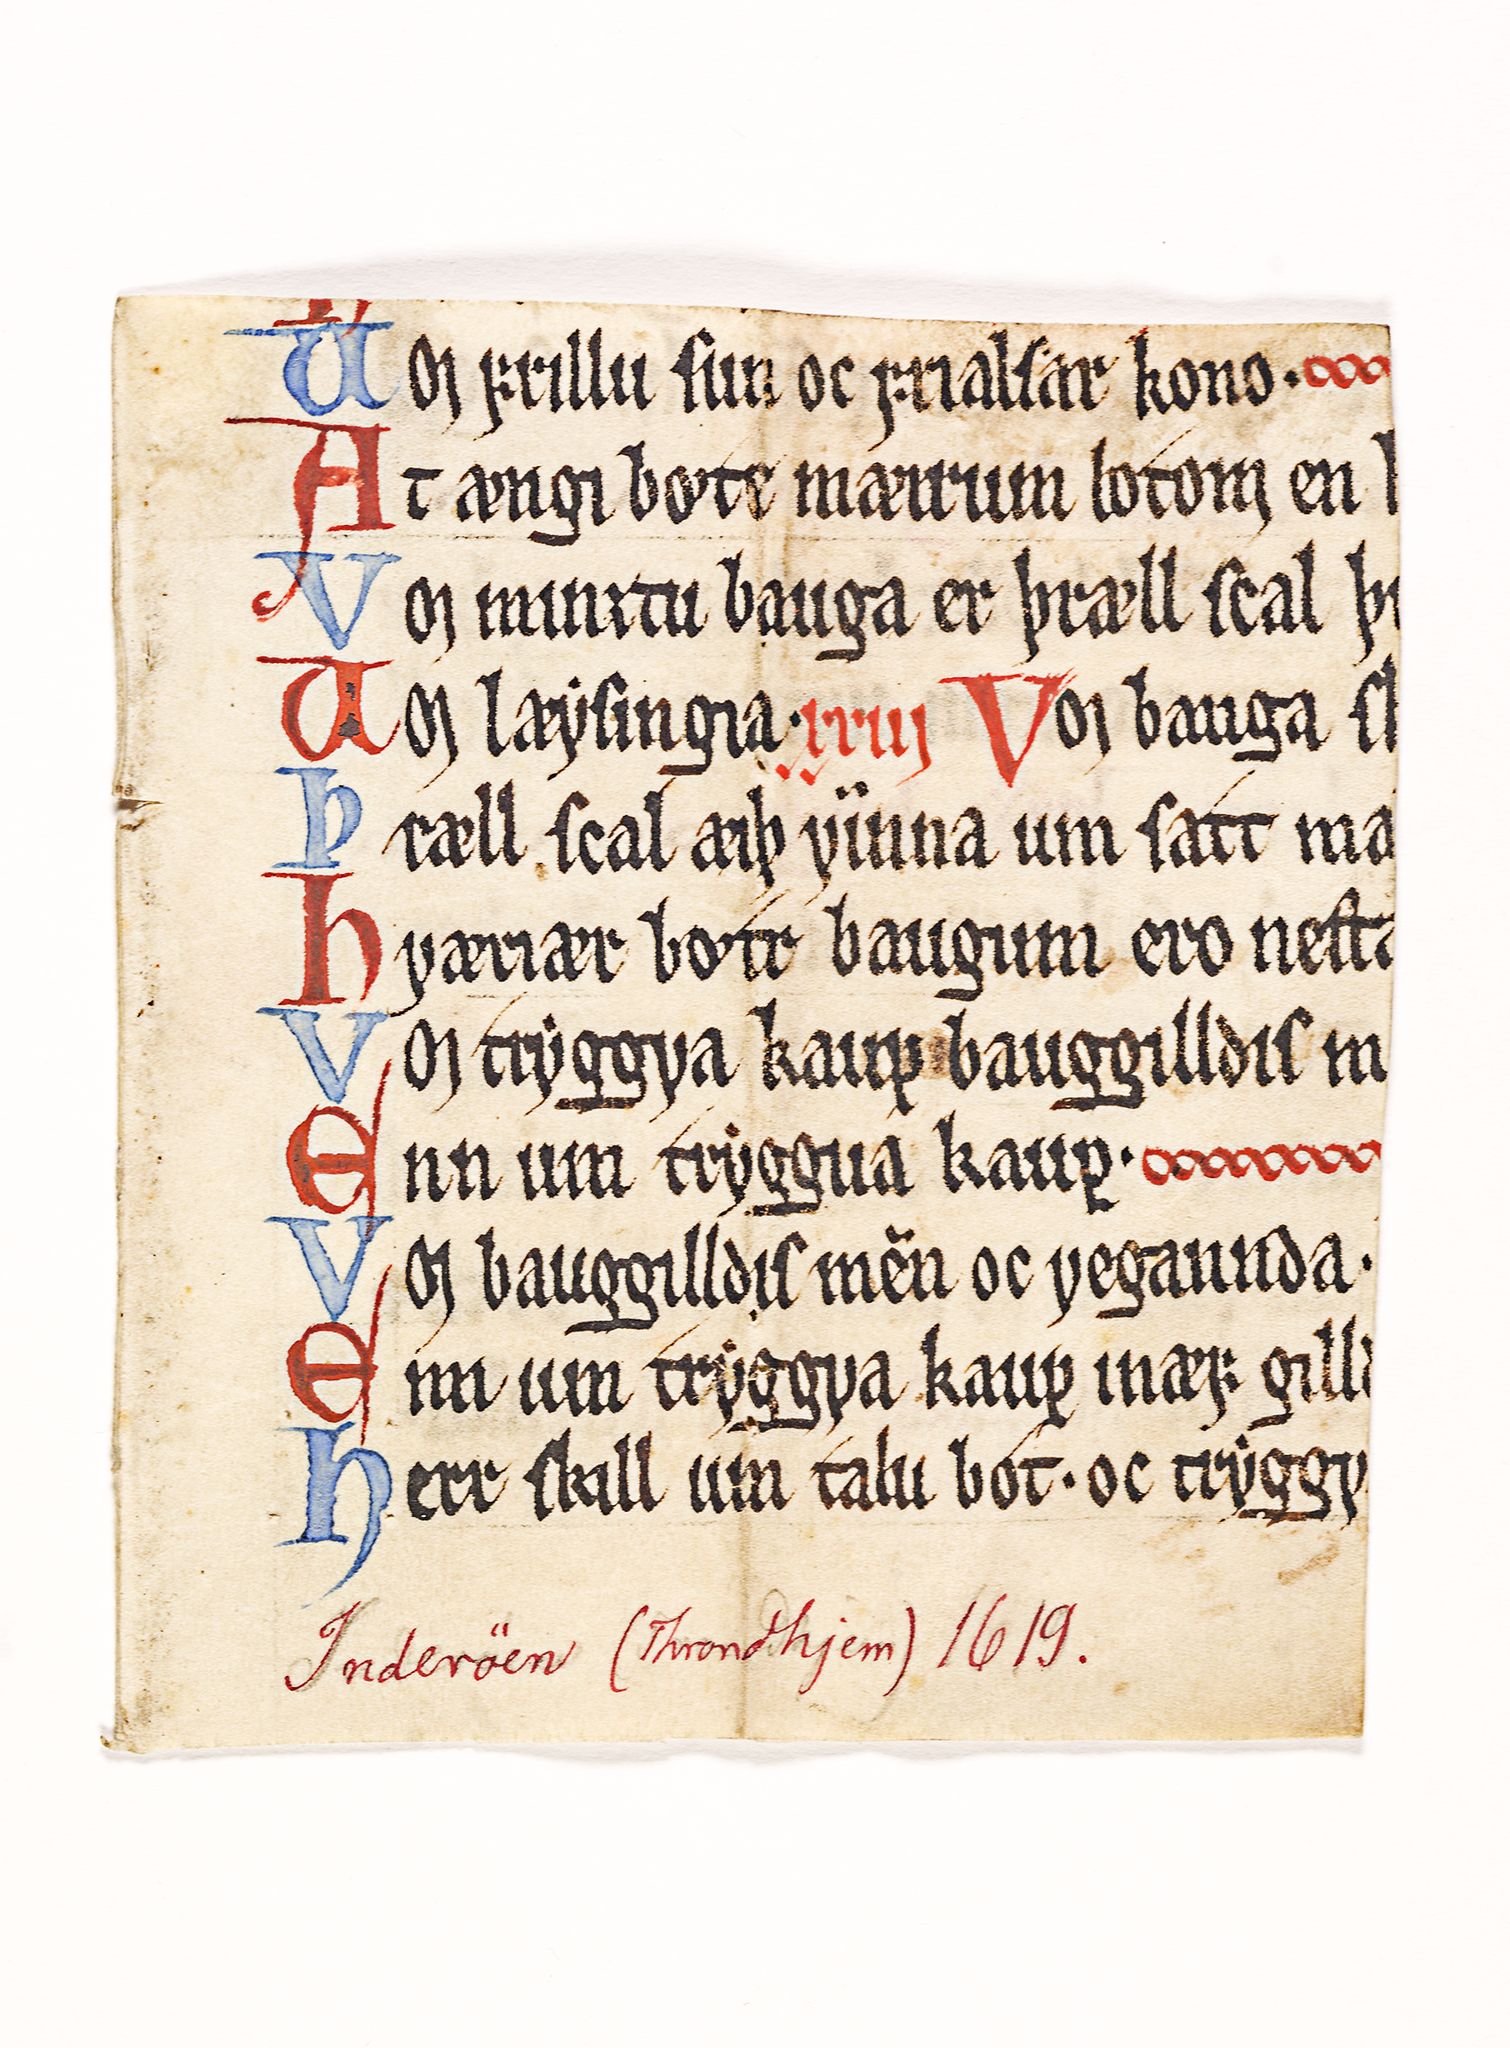 Um frillu sun oc frialsar kono.
At ængi bøte mæirrum lotom en
Vm minztu bauga er þræll scal
Um læysingia. xxiij Vm bauga
Þræll scal æiþ vinna um satt
Hværiær bøte baugum ero nesta
Vm tryggva kaup bauggilldis
Enn um tryggua kaup.
Vm bauggilldis men oc vegannda.
Enn um tryggva kaup mæþ
Herr skill um talu bot. oc
Inderöen (Throndhjem) 1619.